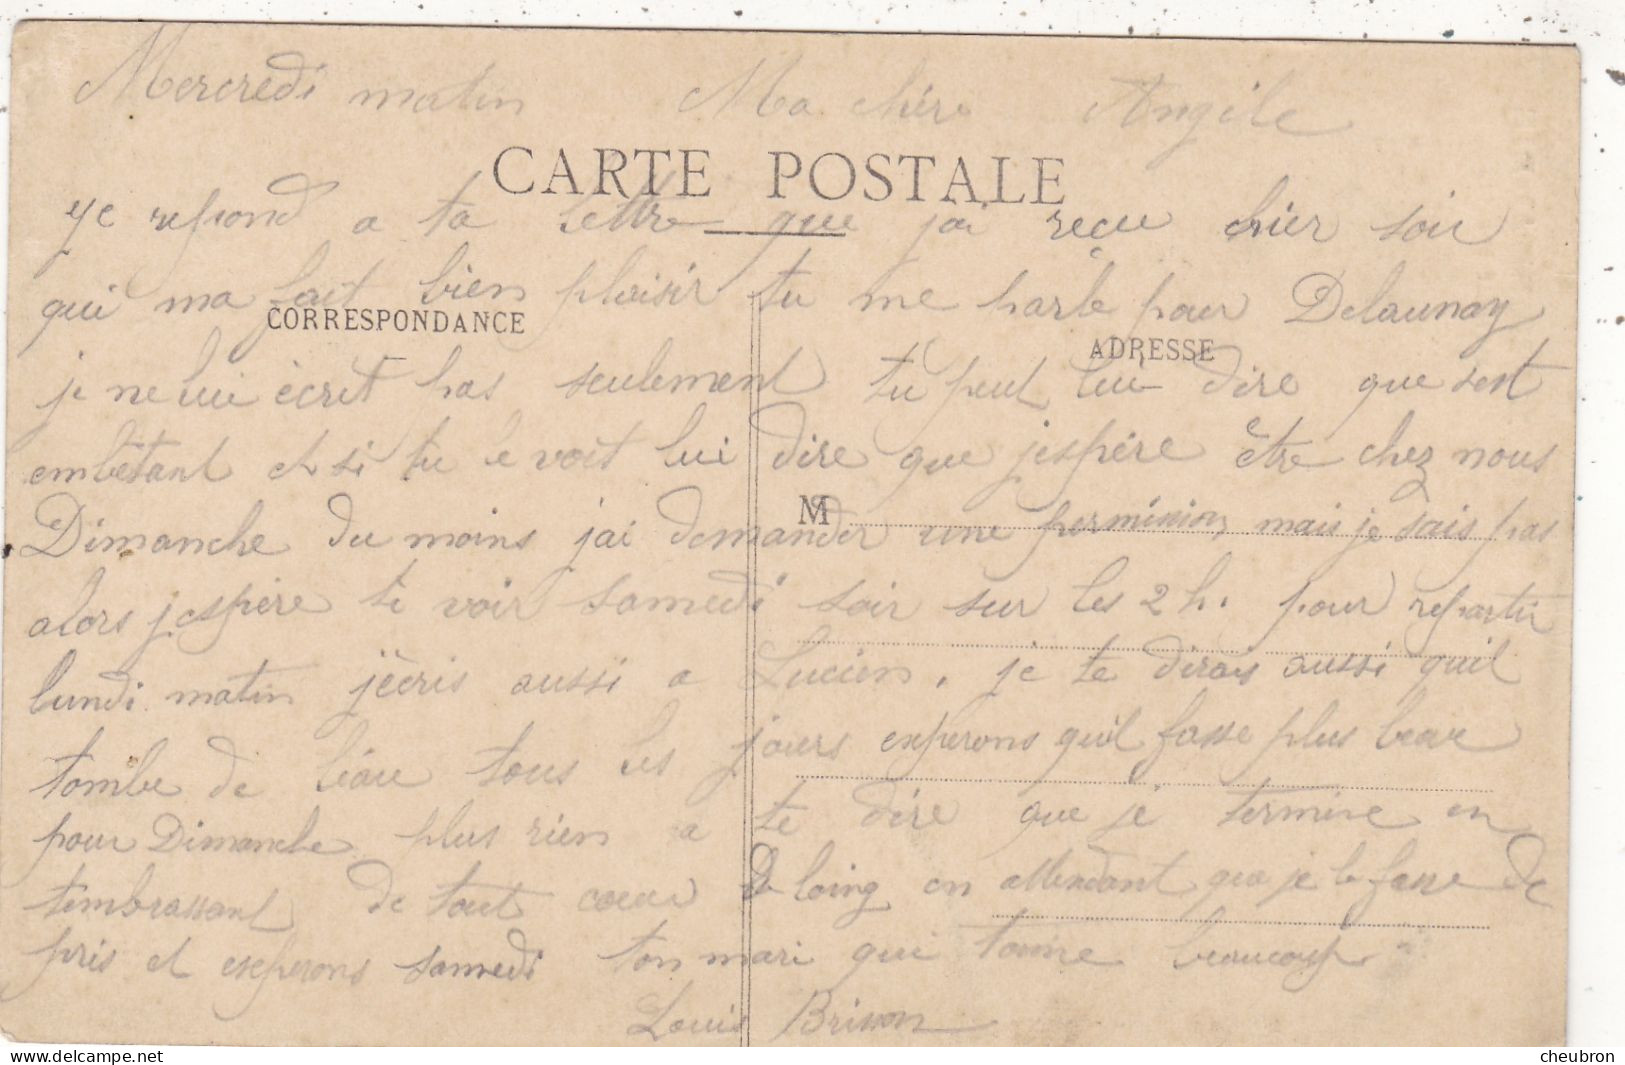 Mercredi matin Ma chère Angèle
CARTE POSTALE
je repond a ta lettre que jai reçu hier soir
qui ma fait bien plaisir tu me parle pour Delaunay
CORRESPONDANCE
ADRESSE
je ne lui écrit pas seulement tu peut lui dire que sest
embêtant et si tu le voit lui dire que jespére être chez nous
M
Dimanche du moins jai demander une permision mais je sais pas
alors jespère te voir samedi soir sur les 2 h. pour repartir
lundi matin jècris aussi a Lucien. je te dirais aussi quil
tombe de leau tous les jours esperons quil fasse plus beau
pour Dimanche plus rien a te dire que je termine en
tembrassant de tout coeur De loing en attendant que je le fasse de
pris et esperons samedi ton mari qui taime beaucoup
Louis Brisson
cheubron.com